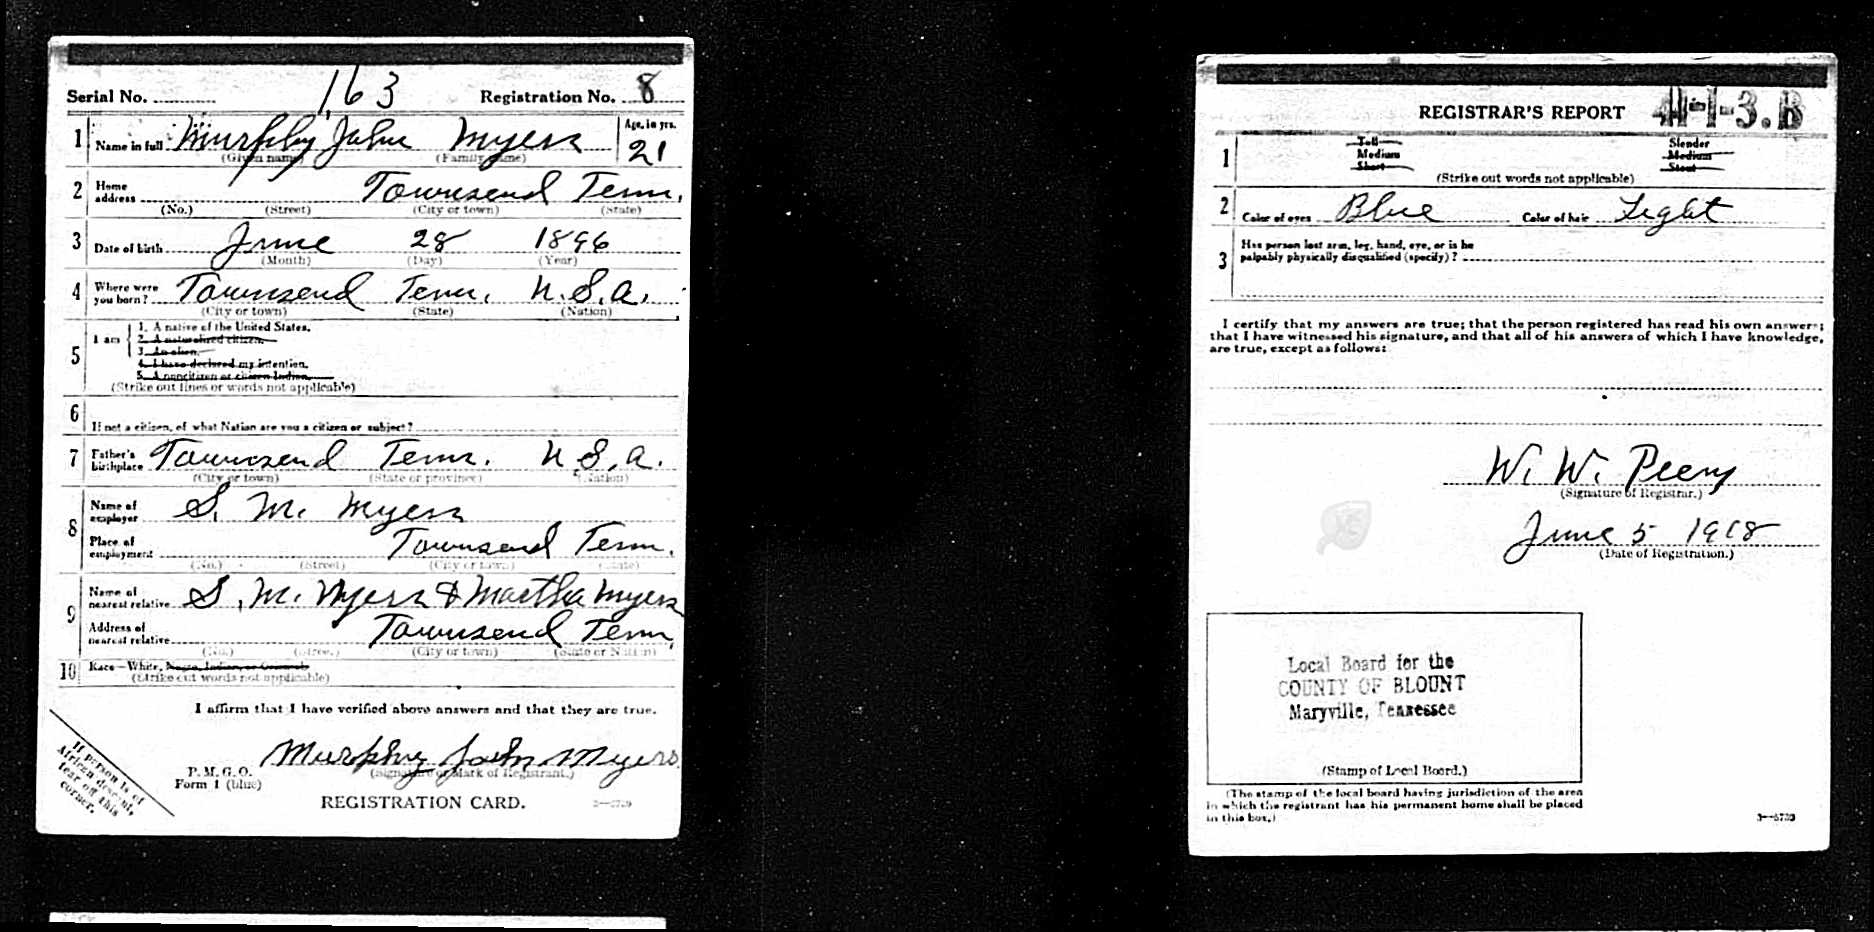 Serial No. 163 Registration No. 8
1 Name in full Murphy John Myers Age, in yrs. 21
(Given name) (Family name)
2 Home address Townsend Tenn.
(No.) (Street) (City or town) (State)
3 Date of birth June 28 1896
(Month) (Day) (Year)
4 Where were you born? Townsend Tenn. U.S.A.
(City or town) (State) (Nation)
5 I am
1. A native of the United States.
2. A naturalized citizen.
3. An alien.
4. I have declared my intention.
5. A noncitizen or citizen Indian.
(Strike out lines or words not applicable)
6 If not a citizen, of what Nation are you a citizen or subject?
7 Father's birthplace Townsend Tenn. U.S.A.
(City or town) (State or province) (Nation)
8 Name of employer S. M. Myers
Place of employment Townsend Tenn.
(No.) (Street) (City or town) (State)
9 Name of nearest relative S. M. Myers & Martha Myers
Address of nearest relative Townsend Tenn
(No.) (Street) (City or town) (State or Nation)
10 Race—White, Negro, Indian, or Oriental
(Strike out words not applicable)
I affirm that I have verified above answers and that they are true.
Murphy John Myers
(Signature or Mark of Registrant.)
P. M. G. O.
Form 1 (blue)
REGISTRATION CARD.
If person is of
African descent,
tear off this
corner.
REGISTRAR'S REPORT 41-1-3.B
1 Tall Slender
Medium Medium
Short Stout
(Strike out words not applicable)
2 Color of eyes Blue Color of hair Light
3 Has person lost arm, leg, hand, eye, or is he
palpably physically disqualified (specify)?
I certify that my answers are true; that the person registered has read his own answers;
that I have witnessed his signature, and that all of his answers of which I have knowledge,
are true, except as follows:
W. W. Peery
(Signature of Registrar.)
June 5 1918
(Date of Registration.)
Local Board for the
COUNTY OF BLOUNT
Maryville, Tennessee
(Stamp of Local Board.)
(The stamp of the local board having jurisdiction of the area
in which the registrant has his permanent home shall be placed
in this box.)